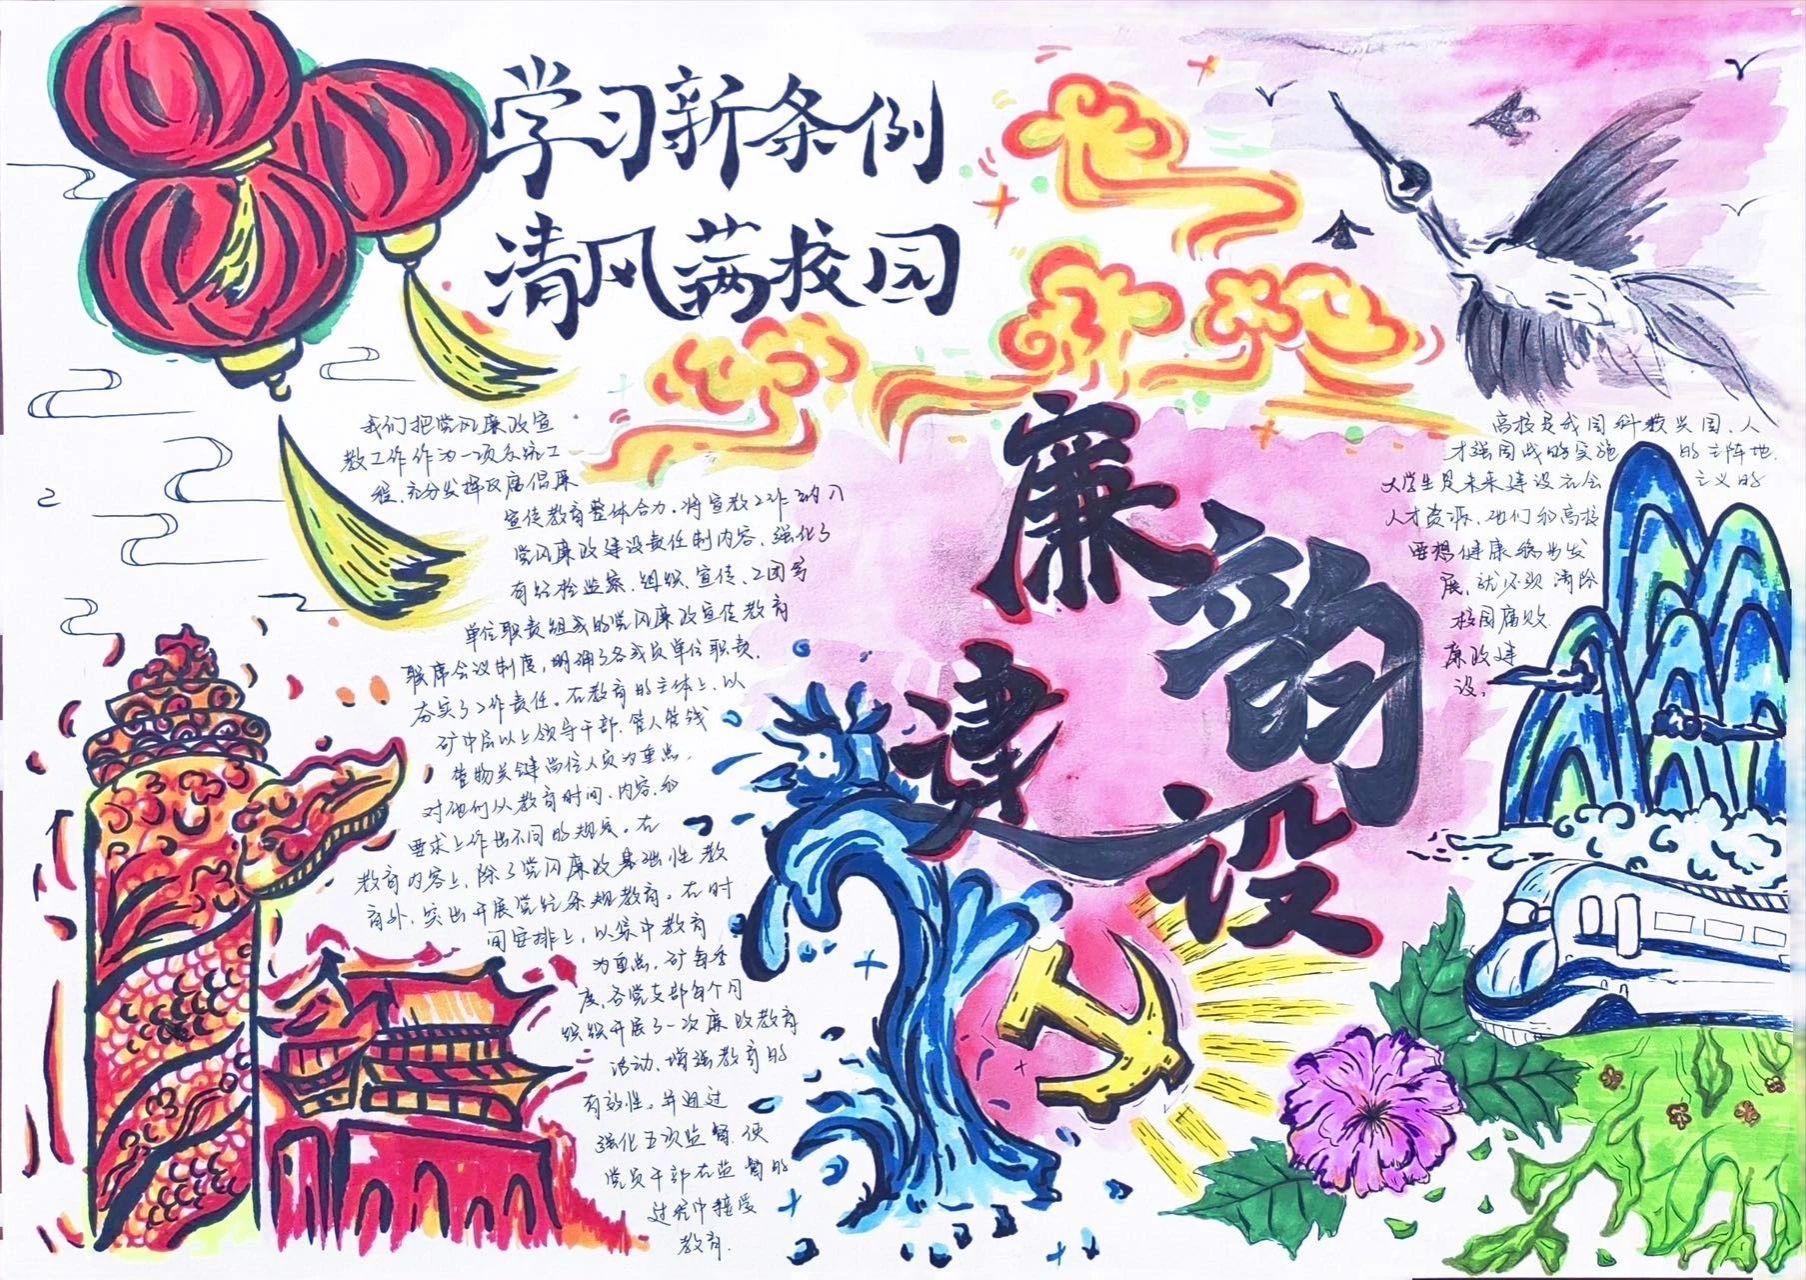 学习新条例
清风满校园
我们把党风廉政宣
教工作作为一项系统工
程、充分发挥反腐倡廉
宣传教育整体合力。将宣教工作纳入
党风廉政建设责任制内容、强化了
有纪检监察、组织、宣传、工团等
单位职责组成的党风廉政宣传教育
联席会议制度，明确了各成员单位职责。
夯实了工作责任。在教育的主体上、以
矿中层以上领导干部、管人管钱
管物关键岗位人员为重点。
对他们从教育时间、内容、和
要求上作出不同的规定。在
教育内容上，除了党风廉政基础性教
育外、突出开展党纪条规教育。在时
间安排上，以集中教育
为重点，矿每季
度、各党支部每个月
组织开展了一次廉政教育
活动、增强教育的
有效性。并通过
强化五项监督、使
党员干部在监督的
过程中接受
教育.
廉韵
建设
高校是我国科教兴国、人
才强国战略实施的主阵地.
大学生是未来建设社会主义的
人才资源、他们和高校
要想健康稳步发
展、就必须清除
校园腐败.
廉政建
设。